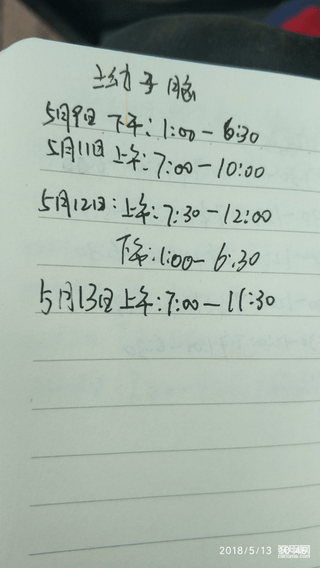 5月9日 下午:1:00-6:30
5月11日 上午:7:00-10:00
5月12日:上午:7:30-12:00
下午:1:00-6:30
5月13日上午:7:00-11:30
2018/5/13